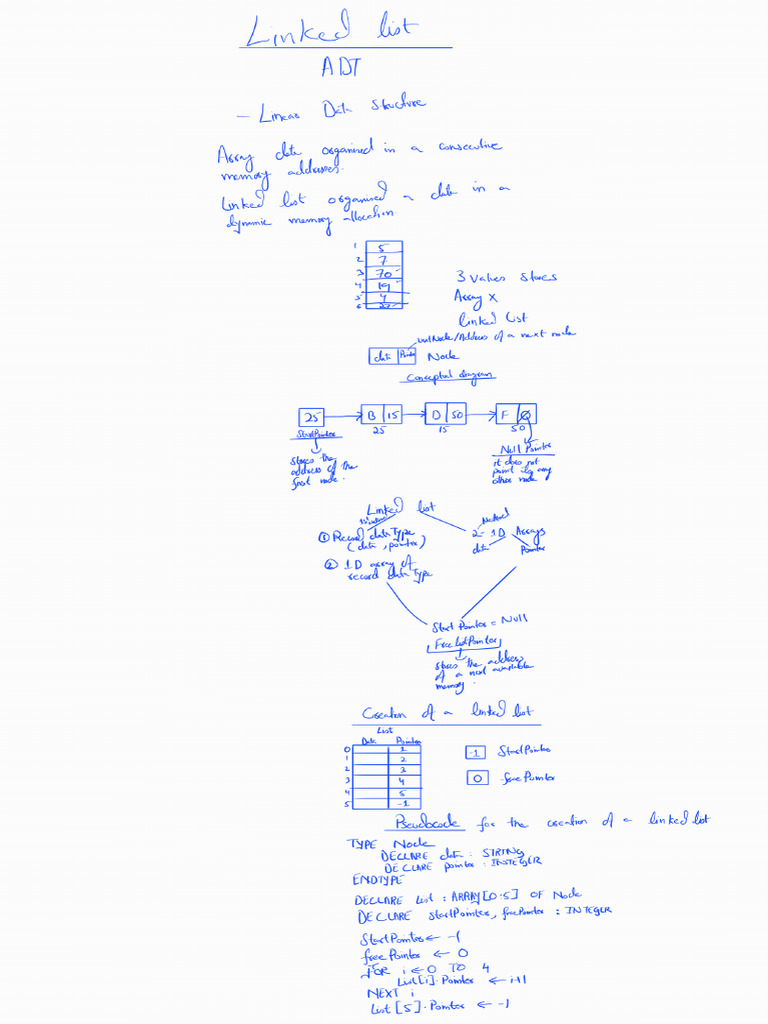 Linked list
ADT
- Linear Data Structure
Array data organised in a consecutive
memory addresses.
Linked list organised a data in a
dynamic memory allocation.
1 5
2 7
3 70
4 19
5 4
6
3 values stores
Array x
Linked List
nextNode/Address of a next node
data Pointer Node
Conceptual diagram
25 B 15 D 50 F Ø
StartPointer 25 15 50
stores the
address of the
first node.
Null Pointer
it does not
point to any
other node
Linked list
1st
① Record dataType
(data, pointer)
② 1D array of
record dataType
Method
2 - 1D Arrays
data Pointer
Start Pointer = Null
FreeListPointer
stores the address
of a next available
memory.
Creation of a linked list
List
Data Pointer
0 1
1 2
2 3
3 4
4 5
5 -1
-1 StartPointer
0 freePointer
Pseudocode for the creation of a linked list
TYPE Node
DECLARE data : STRING
DECLARE pointer : INTEGER
ENDTYPE
DECLARE List : ARRAY[0:5] OF Node
DECLARE startPointer, freePointer : INTEGER
StartPointer ← -1
freePointer ← 0
FOR i ← 0 TO 4
List[i].Pointer ← i+1
NEXT i
List[5].Pointer ← -1